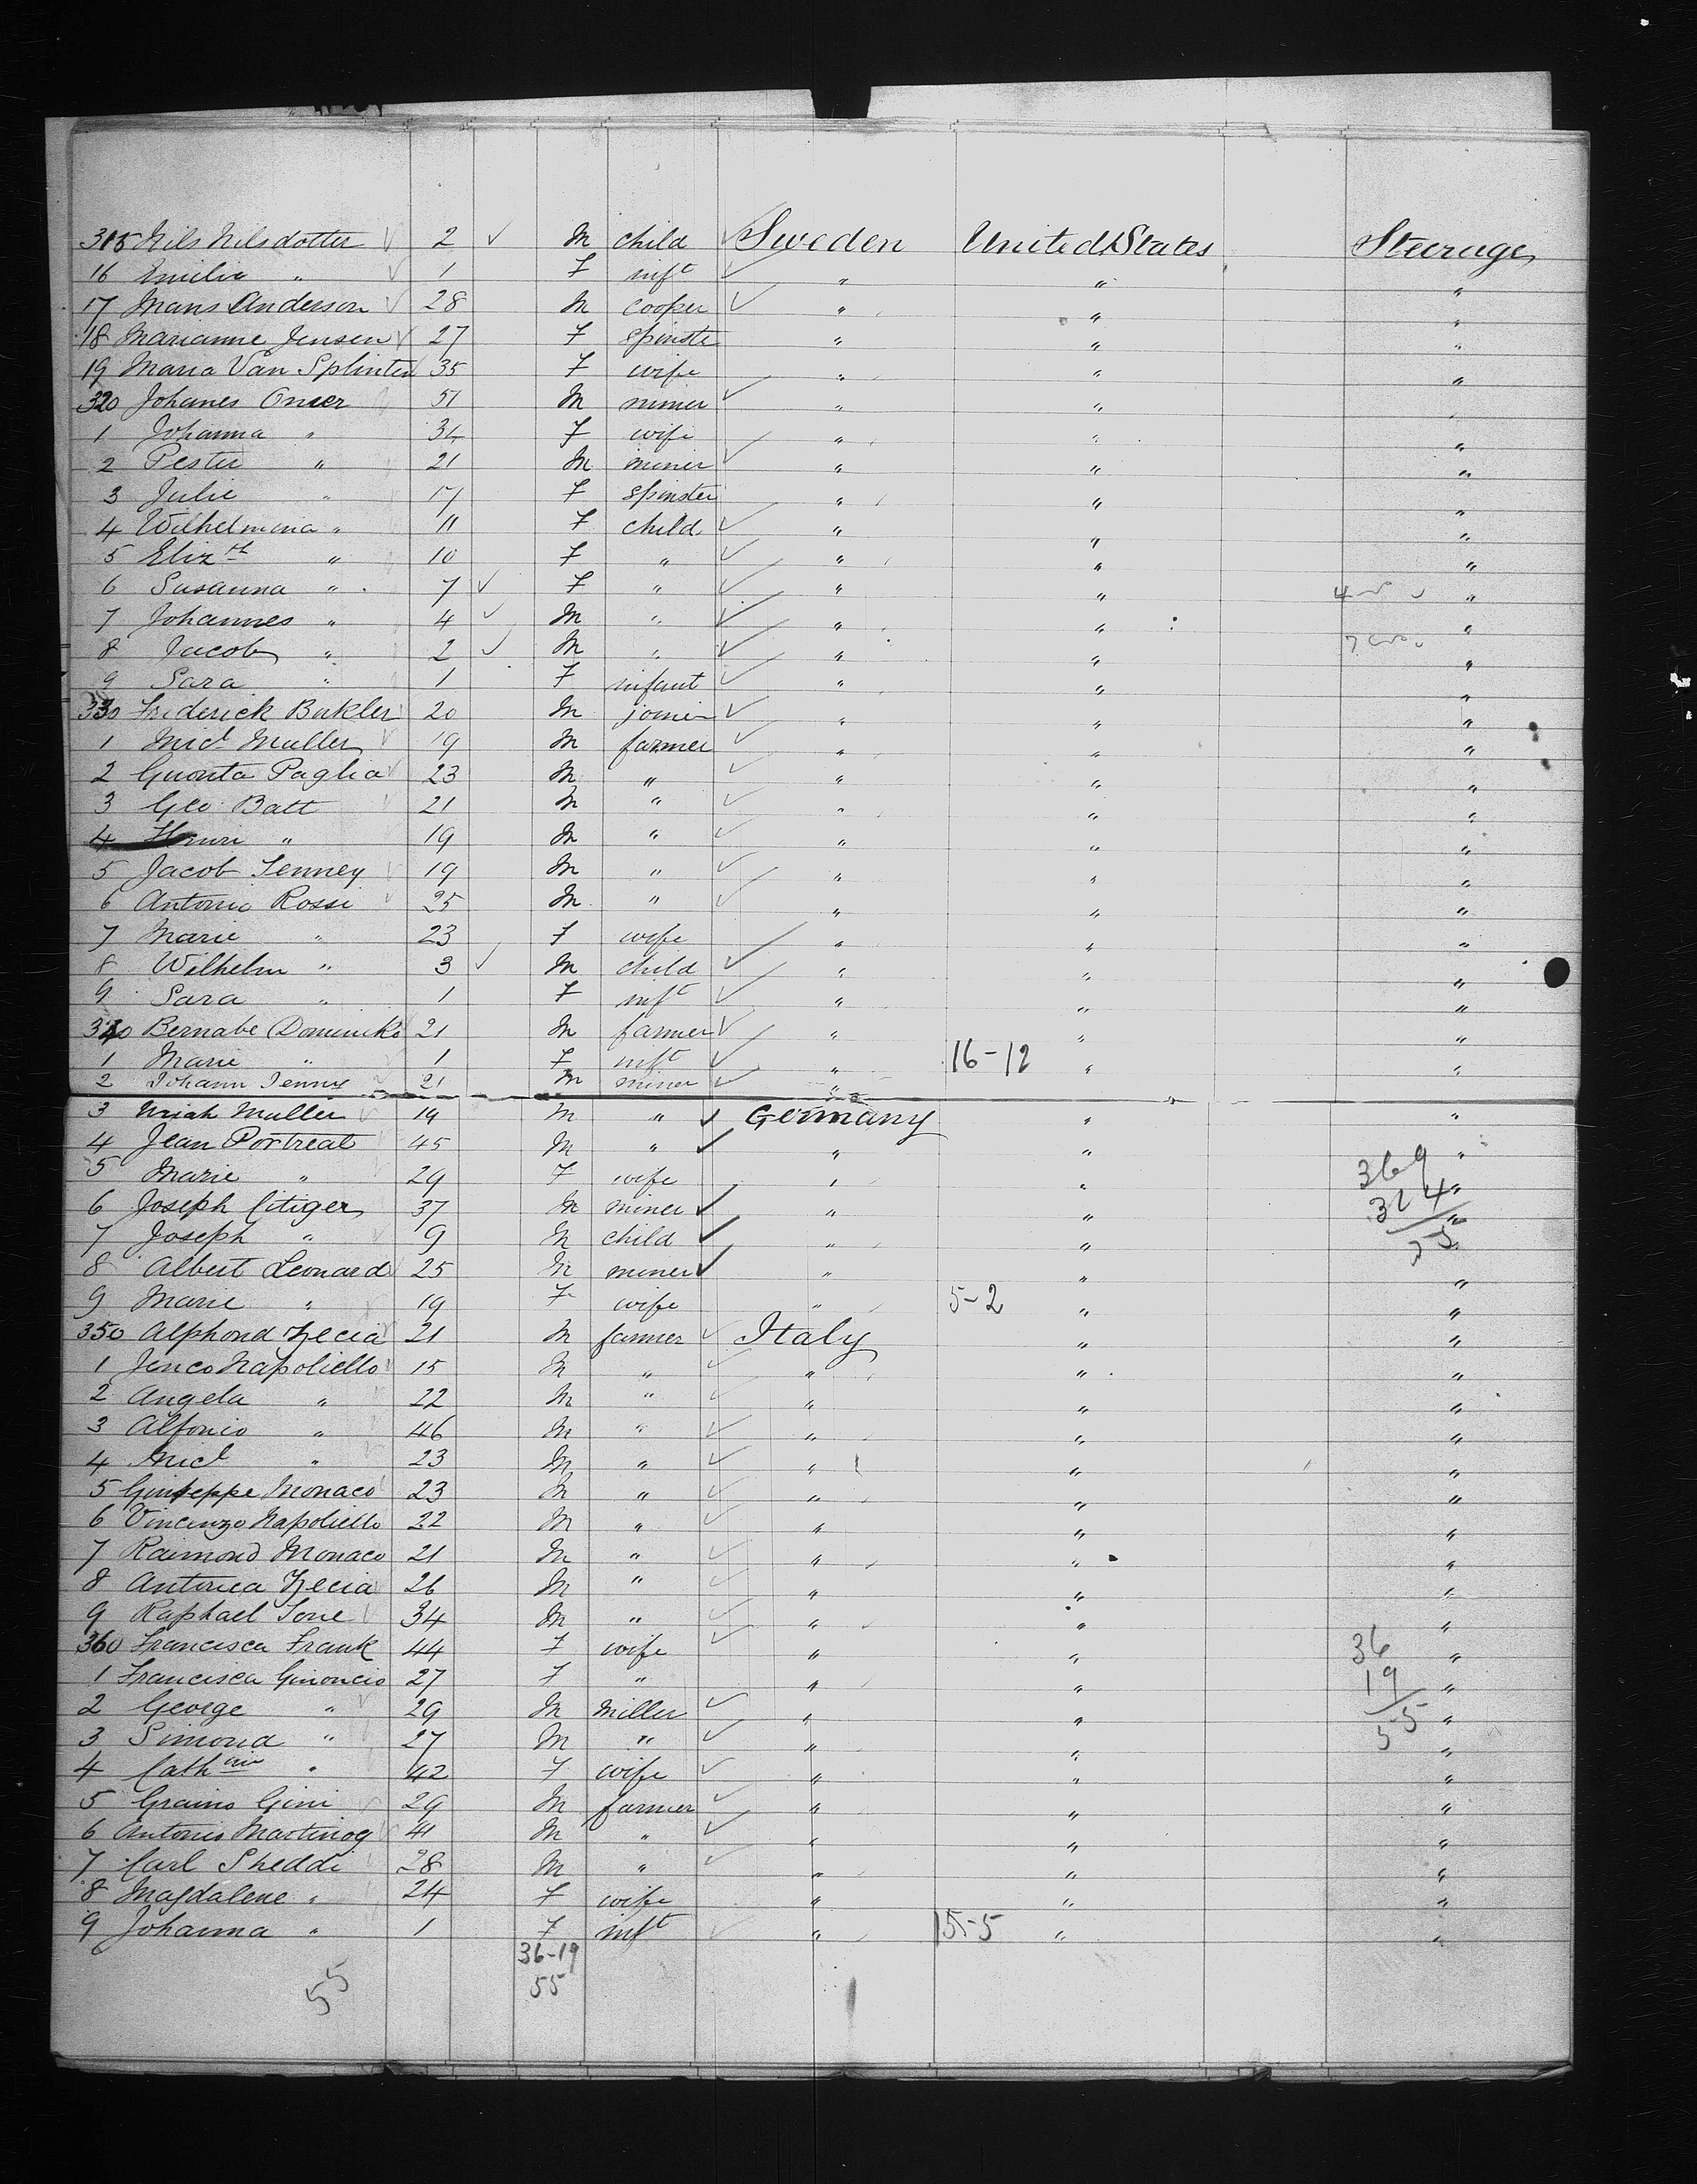 315 Nils Nilsdotter 2 M child Sweden United States Steerage
16 Emilia " 1 F inft " " "
17 Mans Anderson 28 M cooper " " "
18 Marianne Jensen 27 F spinste " " "
19 Maria Van Splinten 35 F wife " " "
320 Johanes Onser 51 M miner " "
1 Johanna " 34 F wife " " "
2 Pester " 21 M miner " " "
3 Julie " 17 F spinster " " "
4 Wilhelmina " 11 F child " " "
5 Elizth " 10 F " " " "
6 Susanna " 7 F " " " "
7 Johannes " 4 M " " " "
8 Jacob " 2 M " " " "
9 Sara " 1 F infant " " "
330 Friderick Bukler 20 M joiner " " "
1 Micl Muller 19 M farmer " " "
2 Guonta Paglia 23 M " " " "
3 Geo Batt 21 M " " " "
4 Henri " 19 M " " " "
5 Jacob Jenney 19 M " " " "
6 Antonio Rossi 25 M " " " "
7 Marie " 23 F wife " " "
8 Wilhelm " 3 M child " " "
9 Sara " 1 F inft " " "
340 Bernabe Dominiko 21 M farmer " " "
1 Marie " 1 F inft " 16-12 " "
2 Johann Jenny 21 M miner "
3 Uriah Muller 19 M " Germany " "
4 Jean Portreat 45 M " " " "
5 Marie " 29 F wife " " "
369
6 Joseph Citiger 37 M miner " " "
324
7 Joseph " 9 M child " " "
8 Albert Leonard 25 M miner " " "
9 Marie " 19 F wife " 5-2 " "
350 Alphond Zecia 21 M farmer Italy " "
1 Jenco Napoliello 15 M " " " "
2 Angela " 22 M " " " "
3 Alfonio " 46 M " " " "
4 Micl " 23 M " " " "
5 Giuseppe Monaco 23 M " " " "
6 Vincenzo Napoliello 22 M " " " "
7 Raimond Monaco 21 M " " " "
8 Antonea Zecia 26 M " " " "
9 Raphael Ione 34 M " " " "
360 Francisca Frank 44 F wife " " 36 "
1 Francisca Ginoncio 27 F " " " 19 "
2 George " 29 M miller " " 55 "
3 Simona " 27 M " " " "
4 Cathrin " 42 F wife " " "
5 Graino Gini 29 M farmer " " "
6 Antonio Martinog 41 M " " " "
7 Carl Sheddi 28 M " " " "
8 Magdalene " 24 F wife " " "
9 Johanna " 1 F inft " 15-5 " "
36-19
55
55